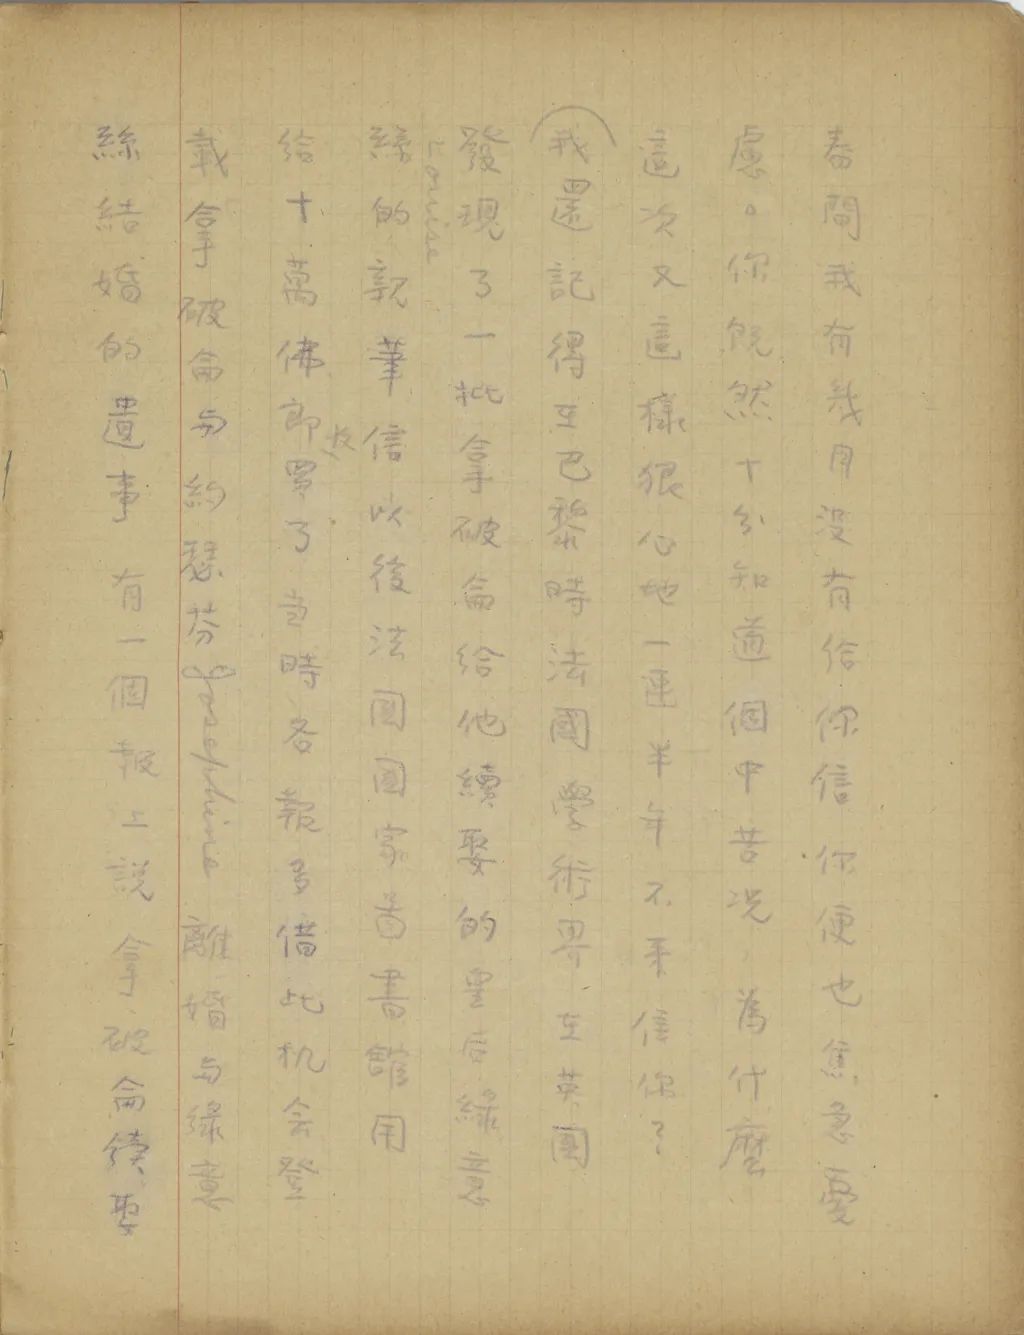 春間我有幾月沒有給你信你便也焦急憂
慮。你既然十分知道個中苦況，為什麼
這次又這樣狠心地一連半年不來信你？
我還記得在巴黎時法國學術界在英國
發現了一批拿破侖給他續娶的皇后綠意
Louise
絲的親筆信以後法国國家昌書館用
給十萬佛郎買了当時各報多借此机会登
友
載拿破侖与約瑟芬Josephine離婚与綠意
絲結婚的遺事 有一個報上說拿破侖續娶